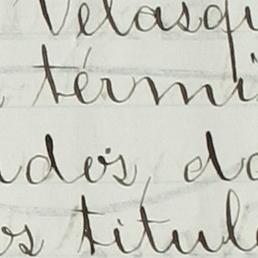 Velasqu
térmi
dos, do
os titul